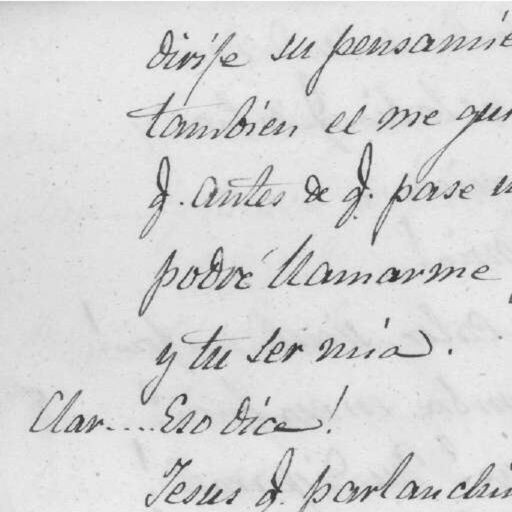 dirije su pensamie
tambien el me gu
q. antes de q. pase u
podré llamarme
y tu ser mia.
Clar.... Eso dice!
Jesus q. parlanchin